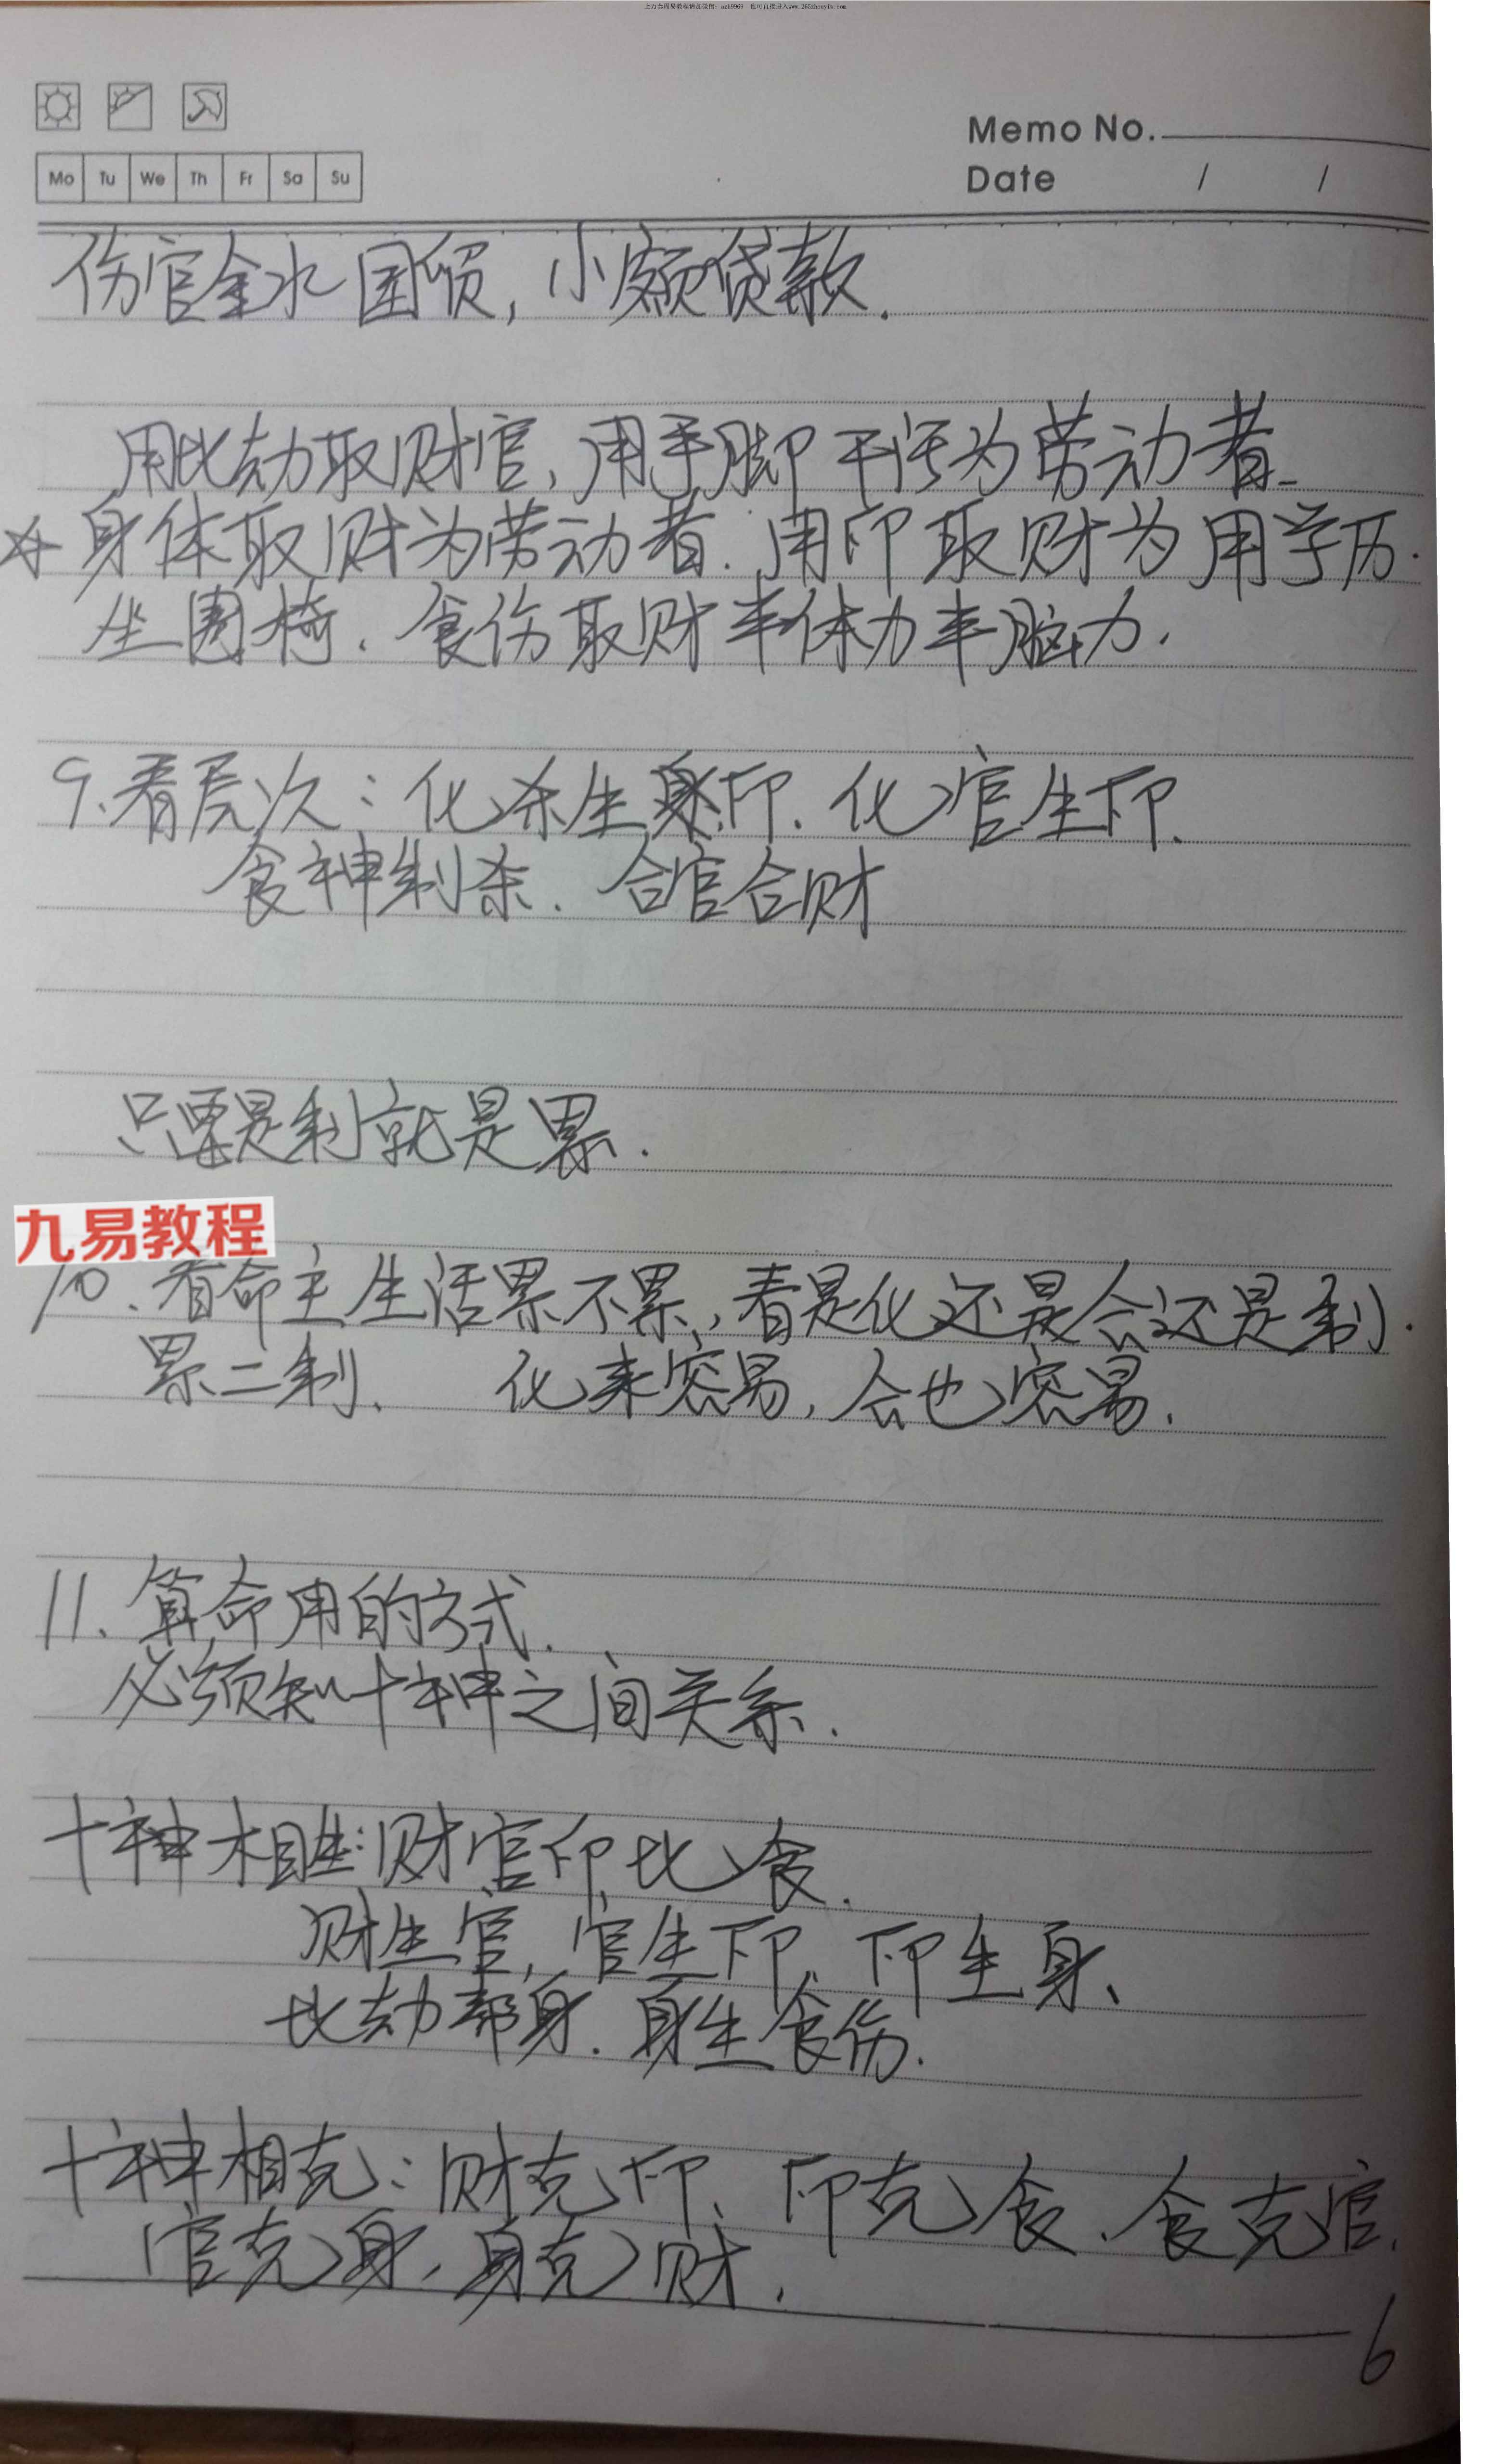 上万套周易教程请加微信：ozh9969 也可直接进入www.265zhouyiw.com
Memo No.
Mo Tu We Th Fr Sa Su
Date / /
伤官金水国贸，小额贷款.
用比劫取财官，用手脚干活为劳动者.
身体取财为劳动者.用印取财为用学历.
坐圈椅.食伤取财半体力半脑力.
9.看层次：化杀生身印.化官生印.
食神制杀.合官合财
只要是制就是累.
九易教程
10.看命主生活累不累，看是化还是合还是制.
累二制.化来容易，合也容易.
11.算命用的方式.
必须知十神之间关系.
十神相生:财官印比食.
财生官，官生印、印生身、
比劫帮身.身生食伤.
十神相克：财克印、印克食、食克官.
官克身，身克财.
6